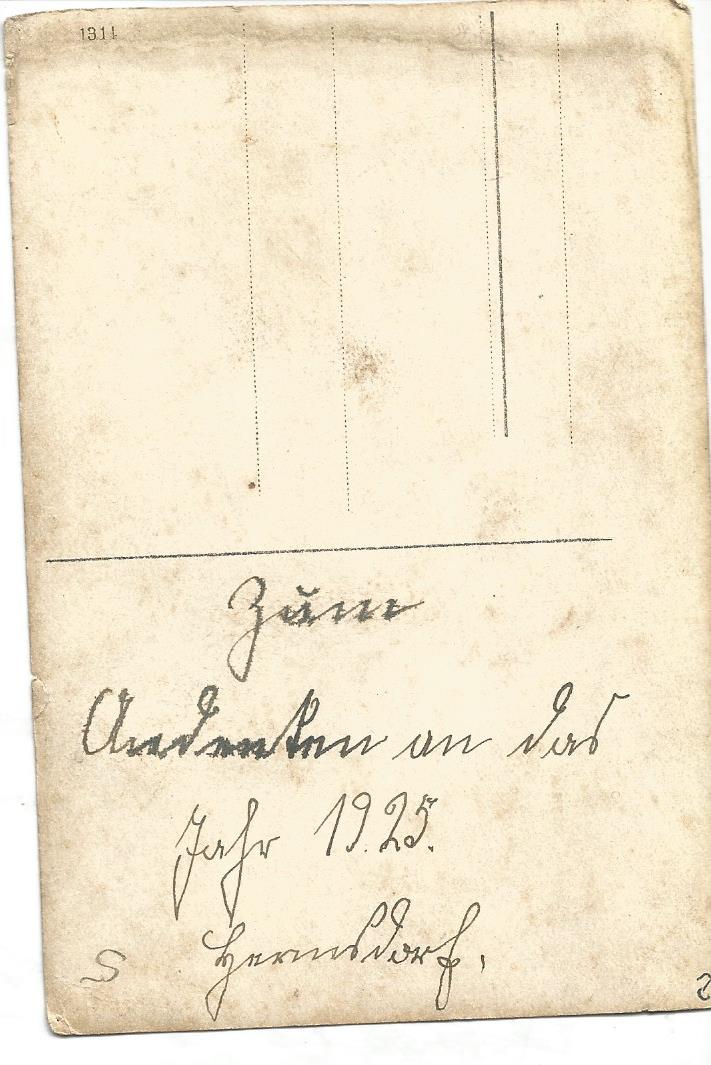 1311
Zum
Andenken an das
Jahr 1925.
Hermsdorf.
S